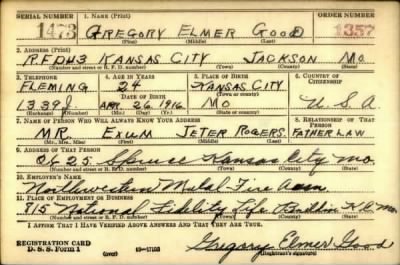 SERIAL NUMBER 1. NAME (Print) ORDER NUMBER
1473 GREGORY ELMER GOOD 1357
(First) (Middle) (Last)
2. ADDRESS (Print)
R.F.D#3 KANSAS CITY JACKSON MO.
(Number and street or R. F. D. number) (Town) (County) (State)
3. TELEPHONE 4. AGE IN YEARS 5. PLACE OF BIRTH 6. COUNTRY OF CITIZENSHIP
FLEMING 24 KANSAS CITY
DATE OF BIRTH (Town or county)
1339J. APR. 26, 1916 MO U.S.A.
(Exchange) (Number) (Mo.) (Day) (Yr.) (State or country)
7. NAME OF PERSON WHO WILL ALWAYS KNOW YOUR ADDRESS 8. RELATIONSHIP OF THAT PERSON
MR. EXUM JETER ROGERS FATHER LAW
(Mr., Mrs., Miss) (First) (Middle) (Last)
9. ADDRESS OF THAT PERSON
2625 Spruce Kansas City Mo.
(Number and street or R. F. D. number) (Town) (County) (State)
10. EMPLOYER'S NAME
Northwestern Mutal Fire Assn.
11. PLACE OF EMPLOYMENT OR BUSINESS
815 National Fidelity Life Buildin K.C. Mo
(Number and street or R. F. D. number) (Town) (County) (State)
I AFFIRM THAT I HAVE VERIFIED ABOVE ANSWERS AND THAT THEY ARE TRUE.
REGISTRATION CARD
D. S. S. Form 1 (over) Gregory Elmer Good
(Registrant's signature)